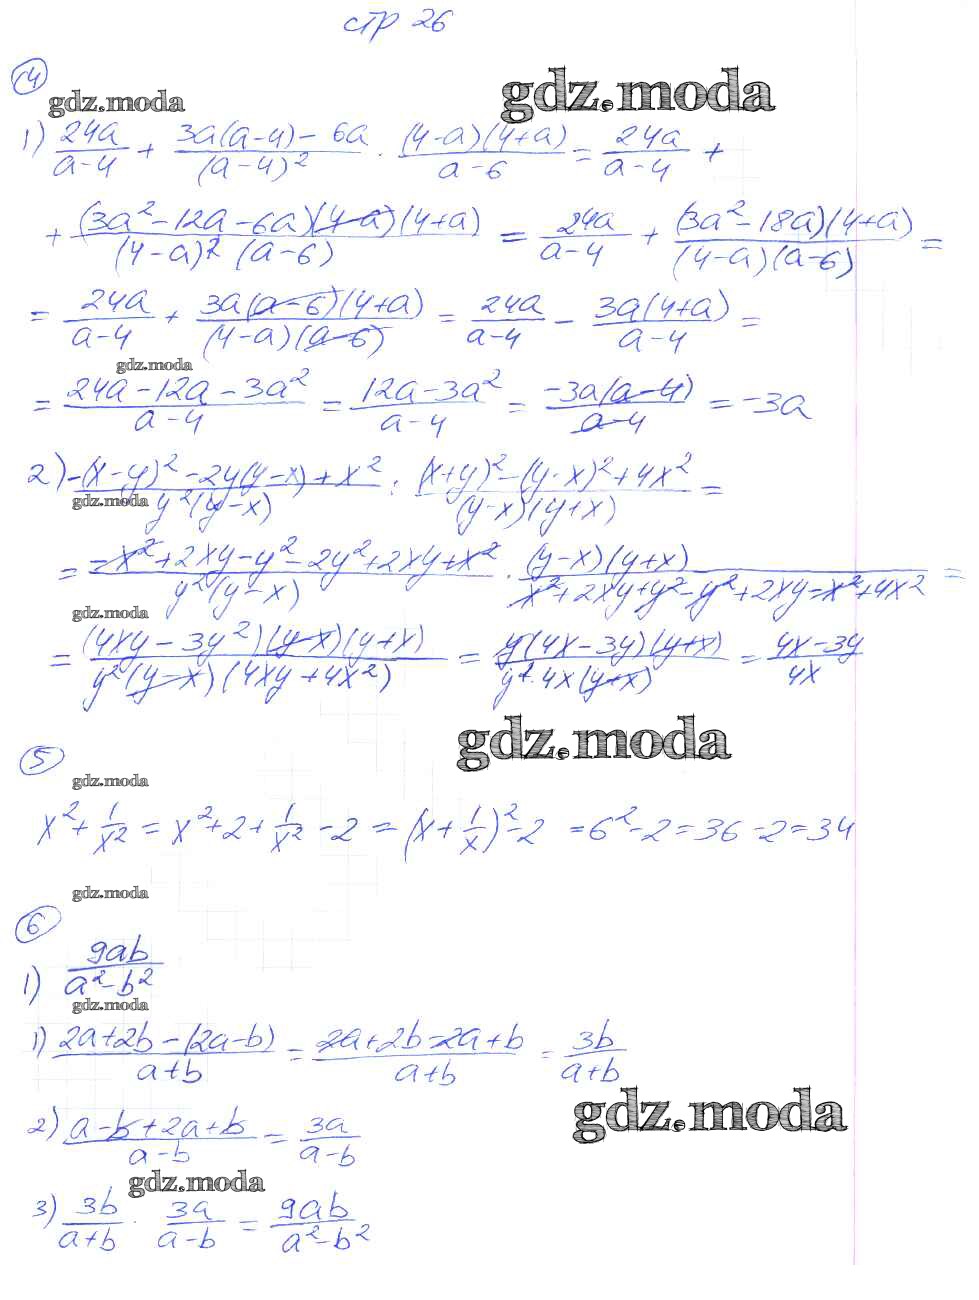 стр 26
4
gdz.moda gdz.moda
1) 24a/(a-4) + (3a(a-4) - 6a)/(a-4)² · (4-a)(4+a)/(a-6) = 24a/(a-4) +
+ (3a² - 12a - 6a)(4-a)(4+a)/((4-a)² (a-6)) = 24a/(a-4) + (3a² - 18a)(4+a)/((4-a)(a-6)) =
= 24a/(a-4) + 3a(a-6)(4+a)/((4-a)(a-6)) = 24a/(a-4) - 3a(4+a)/(a-4) =
gdz.moda
= (24a - 12a - 3a²)/(a-4) = (12a - 3a²)/(a-4) = -3a(a-4)/(a-4) = -3a
2) (-(x-y)² - 2y(y-x) + x²)/(y²(y-x)) : ((x+y)² - (y-x)² + 4x²)/((y-x)(y+x)) =
gdz.moda
= (-x² + 2xy - y² - 2y² + 2xy + x²)/(y²(y-x)) · (y-x)(y+x)/(x² + 2xy + y² - y² + 2xy - x² + 4x²) =
gdz.moda
= (4xy - 3y²)(y-x)(y+x)/(y²(y-x)(4xy + 4x²)) = y(4x - 3y)(y+x)/(y² · 4x(y+x)) = (4x - 3y)/4x
gdz.moda
5
gdz.moda
x² + 1/x² = x² + 2 + 1/x² - 2 = (x + 1/x)² - 2 = 6² - 2 = 36 - 2 = 34
gdz.moda
6
1) 9ab/(a² - b²)
gdz.moda
1) (2a + 2b - (2a - b))/(a+b) = (2a + 2b - 2a + b)/(a+b) = 3b/(a+b)
gdz.moda
2) (a - b + 2a + b)/(a-b) = 3a/(a-b)
gdz.moda
3) 3b/(a+b) · 3a/(a-b) = 9ab/(a² - b²)